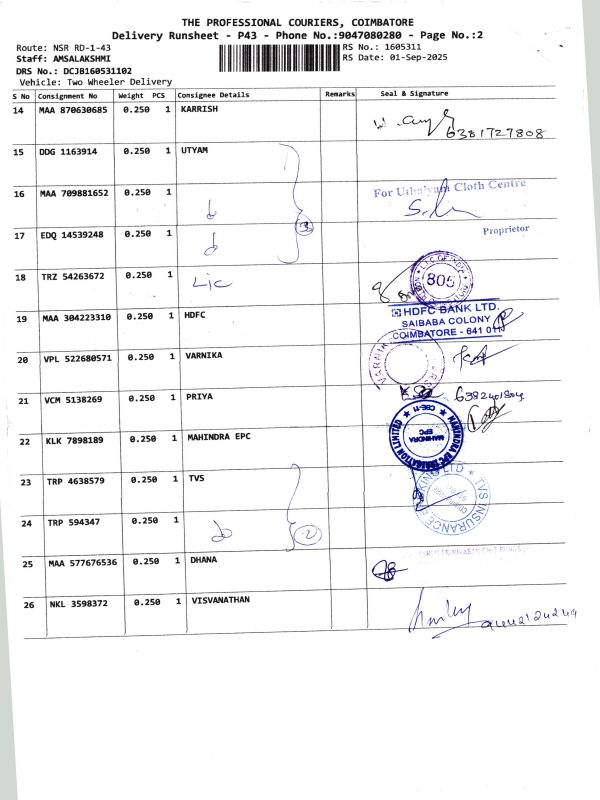 THE PROFESSIONAL COURIERS, COIMBATORE
Delivery Runsheet - P43 - Phone No.:9047080280 - Page No.:2
Route: NSR RD-1-43
RS No.: 1605311
Staff: AMSALAKSHMI
RS Date: 01-Sep-2025
DRS No.: DCJB160531102
Vehicle: Two Wheeler Delivery
S No Consignment No Weight PCS Consignee Details Remarks Seal & Signature
14 MAA 870630685 0.250 1 KARRISH
6381727808
15 DDG 1163914 0.250 1 UTYAM
16 MAA 709881652 0.250 1
For Uthaiyam Cloth Centre
17 EDQ 14539248 0.250 1
3
Proprietor
18 TRZ 54263672 0.250 1 Lic
805
19 MAA 304223310 0.250 1 HDFC
HDFC BANK LTD.
SAIBABA COLONY
COIMBATORE - 641 011
20 VPL 522680571 0.250 1 VARNIKA
21 VCM 5138269 0.250 1 PRIYA
22 KLK 7898189 0.250 1 MAHINDRA EPC
MAHINDRA EPC IRRIGATION LIMITED
CBE-11
MAHINDRA
EPC
23 TRP 4638579 0.250 1 TVS
TVS INSURANCE
24 TRP 594347 0.250 1
2
25 MAA 577676536 0.250 1 DHANA
26 NKL 3598372 0.250 1 VISVANATHAN